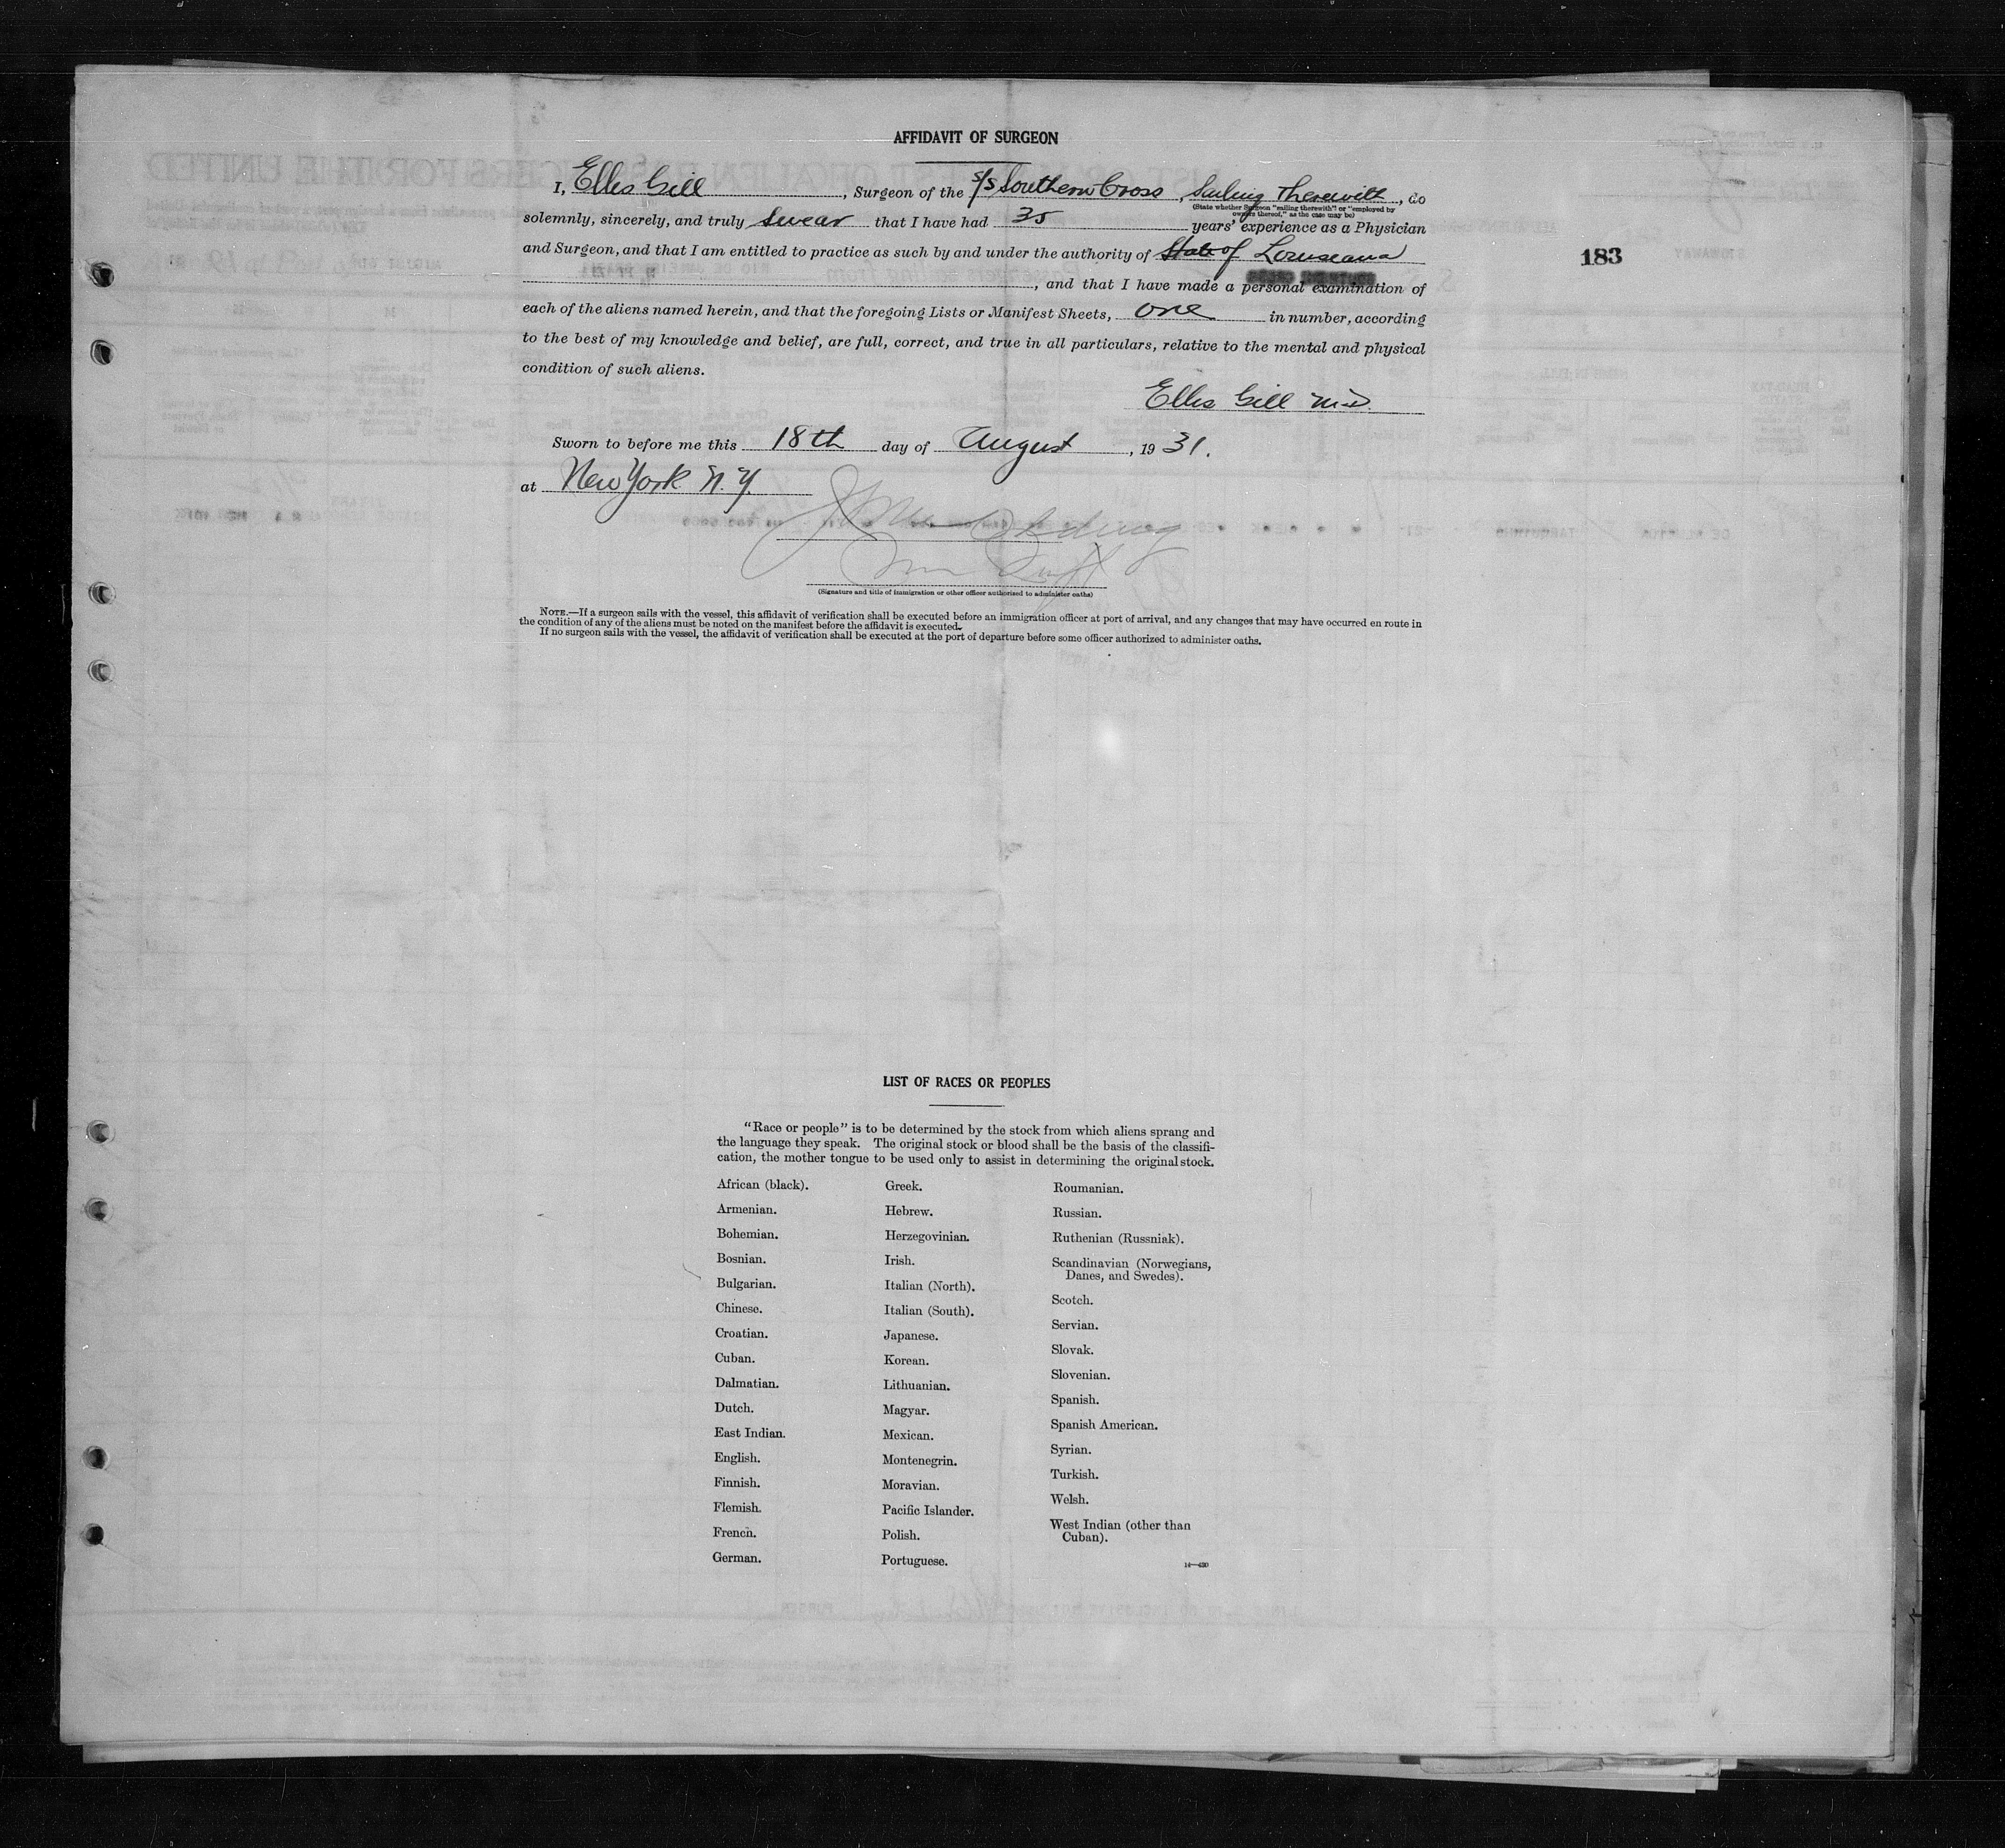 AFFIDAVIT OF SURGEON
183
I, Ellis Gill, Surgeon of the S/S Southern Cross, Sailing Therewith, do
(State whether Surgeon "sailing therewith" or "employed by
owners thereof," as the case may be)
solemnly, sincerely, and truly swear that I have had 35 years' experience as a Physician
and Surgeon, and that I am entitled to practice as such by and under the authority of State of Louiseana
, and that I have made a personal examination of
each of the aliens named herein, and that the foregoing Lists or Manifest Sheets, one in number, according
to the best of my knowledge and belief, are full, correct, and true in all particulars, relative to the mental and physical
condition of such aliens.
Ellis Gill M.D.
Sworn to before me this 18th day of August, 1931.
at New York N.Y.
(Signature and title of immigration or other officer authorized to administer oaths)
NOTE.—If a surgeon sails with the vessel, this affidavit of verification shall be executed before an immigration officer at port of arrival, and any changes that may have occurred en route in
the condition of any of the aliens must be noted on the manifest before the affidavit is executed.
If no surgeon sails with the vessel, the affidavit of verification shall be executed at the port of departure before some officer authorized to administer oaths.
LIST OF RACES OR PEOPLES
"Race or people" is to be determined by the stock from which aliens sprang and
the language they speak. The original stock or blood shall be the basis of the classifi-
cation, the mother tongue to be used only to assist in determining the original stock.
African (black).
Armenian.
Bohemian.
Bosnian.
Bulgarian.
Chinese.
Croatian.
Cuban.
Dalmatian.
Dutch.
East Indian.
English.
Finnish.
Flemish.
French.
German.
Greek.
Hebrew.
Herzegovinian.
Irish.
Italian (North).
Italian (South).
Japanese.
Korean.
Lithuanian.
Magyar.
Mexican.
Montenegrin.
Moravian.
Pacific Islander.
Polish.
Portuguese.
Roumanian.
Russian.
Ruthenian (Russniak).
Scandinavian (Norwegians,
Danes, and Swedes).
Scotch.
Servian.
Slovak.
Slovenian.
Spanish.
Spanish American.
Syrian.
Turkish.
Welsh.
West Indian (other than
Cuban).
14—430